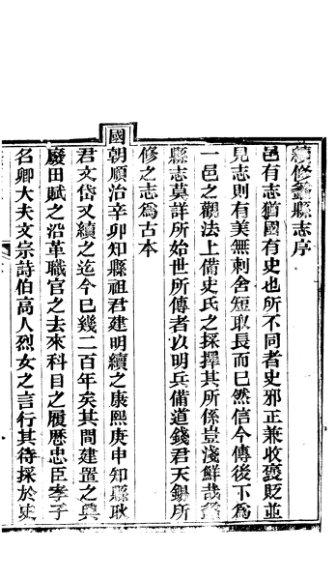 續修蠡縣志序
邑有志猶國有史也所不同者史邪正兼收褒貶並
見志則有美無刺舍短取長而已然信今傳後下為
一邑之觀法上備史氏之採擇其所係豈淺鮮哉蠡
縣志莫詳所始世所傳者以明兵備道錢君天錫所
修之志為古本
國朝順治辛卯知縣祖君建明續之康熙庚申知縣耿
君文岱又續之迄今已幾二百年矣其間建置之興
廢田賦之沿革職官之去來科目之履歷忠臣孝子
名卿大夫文宗詩伯高人烈女之言行其待採於史